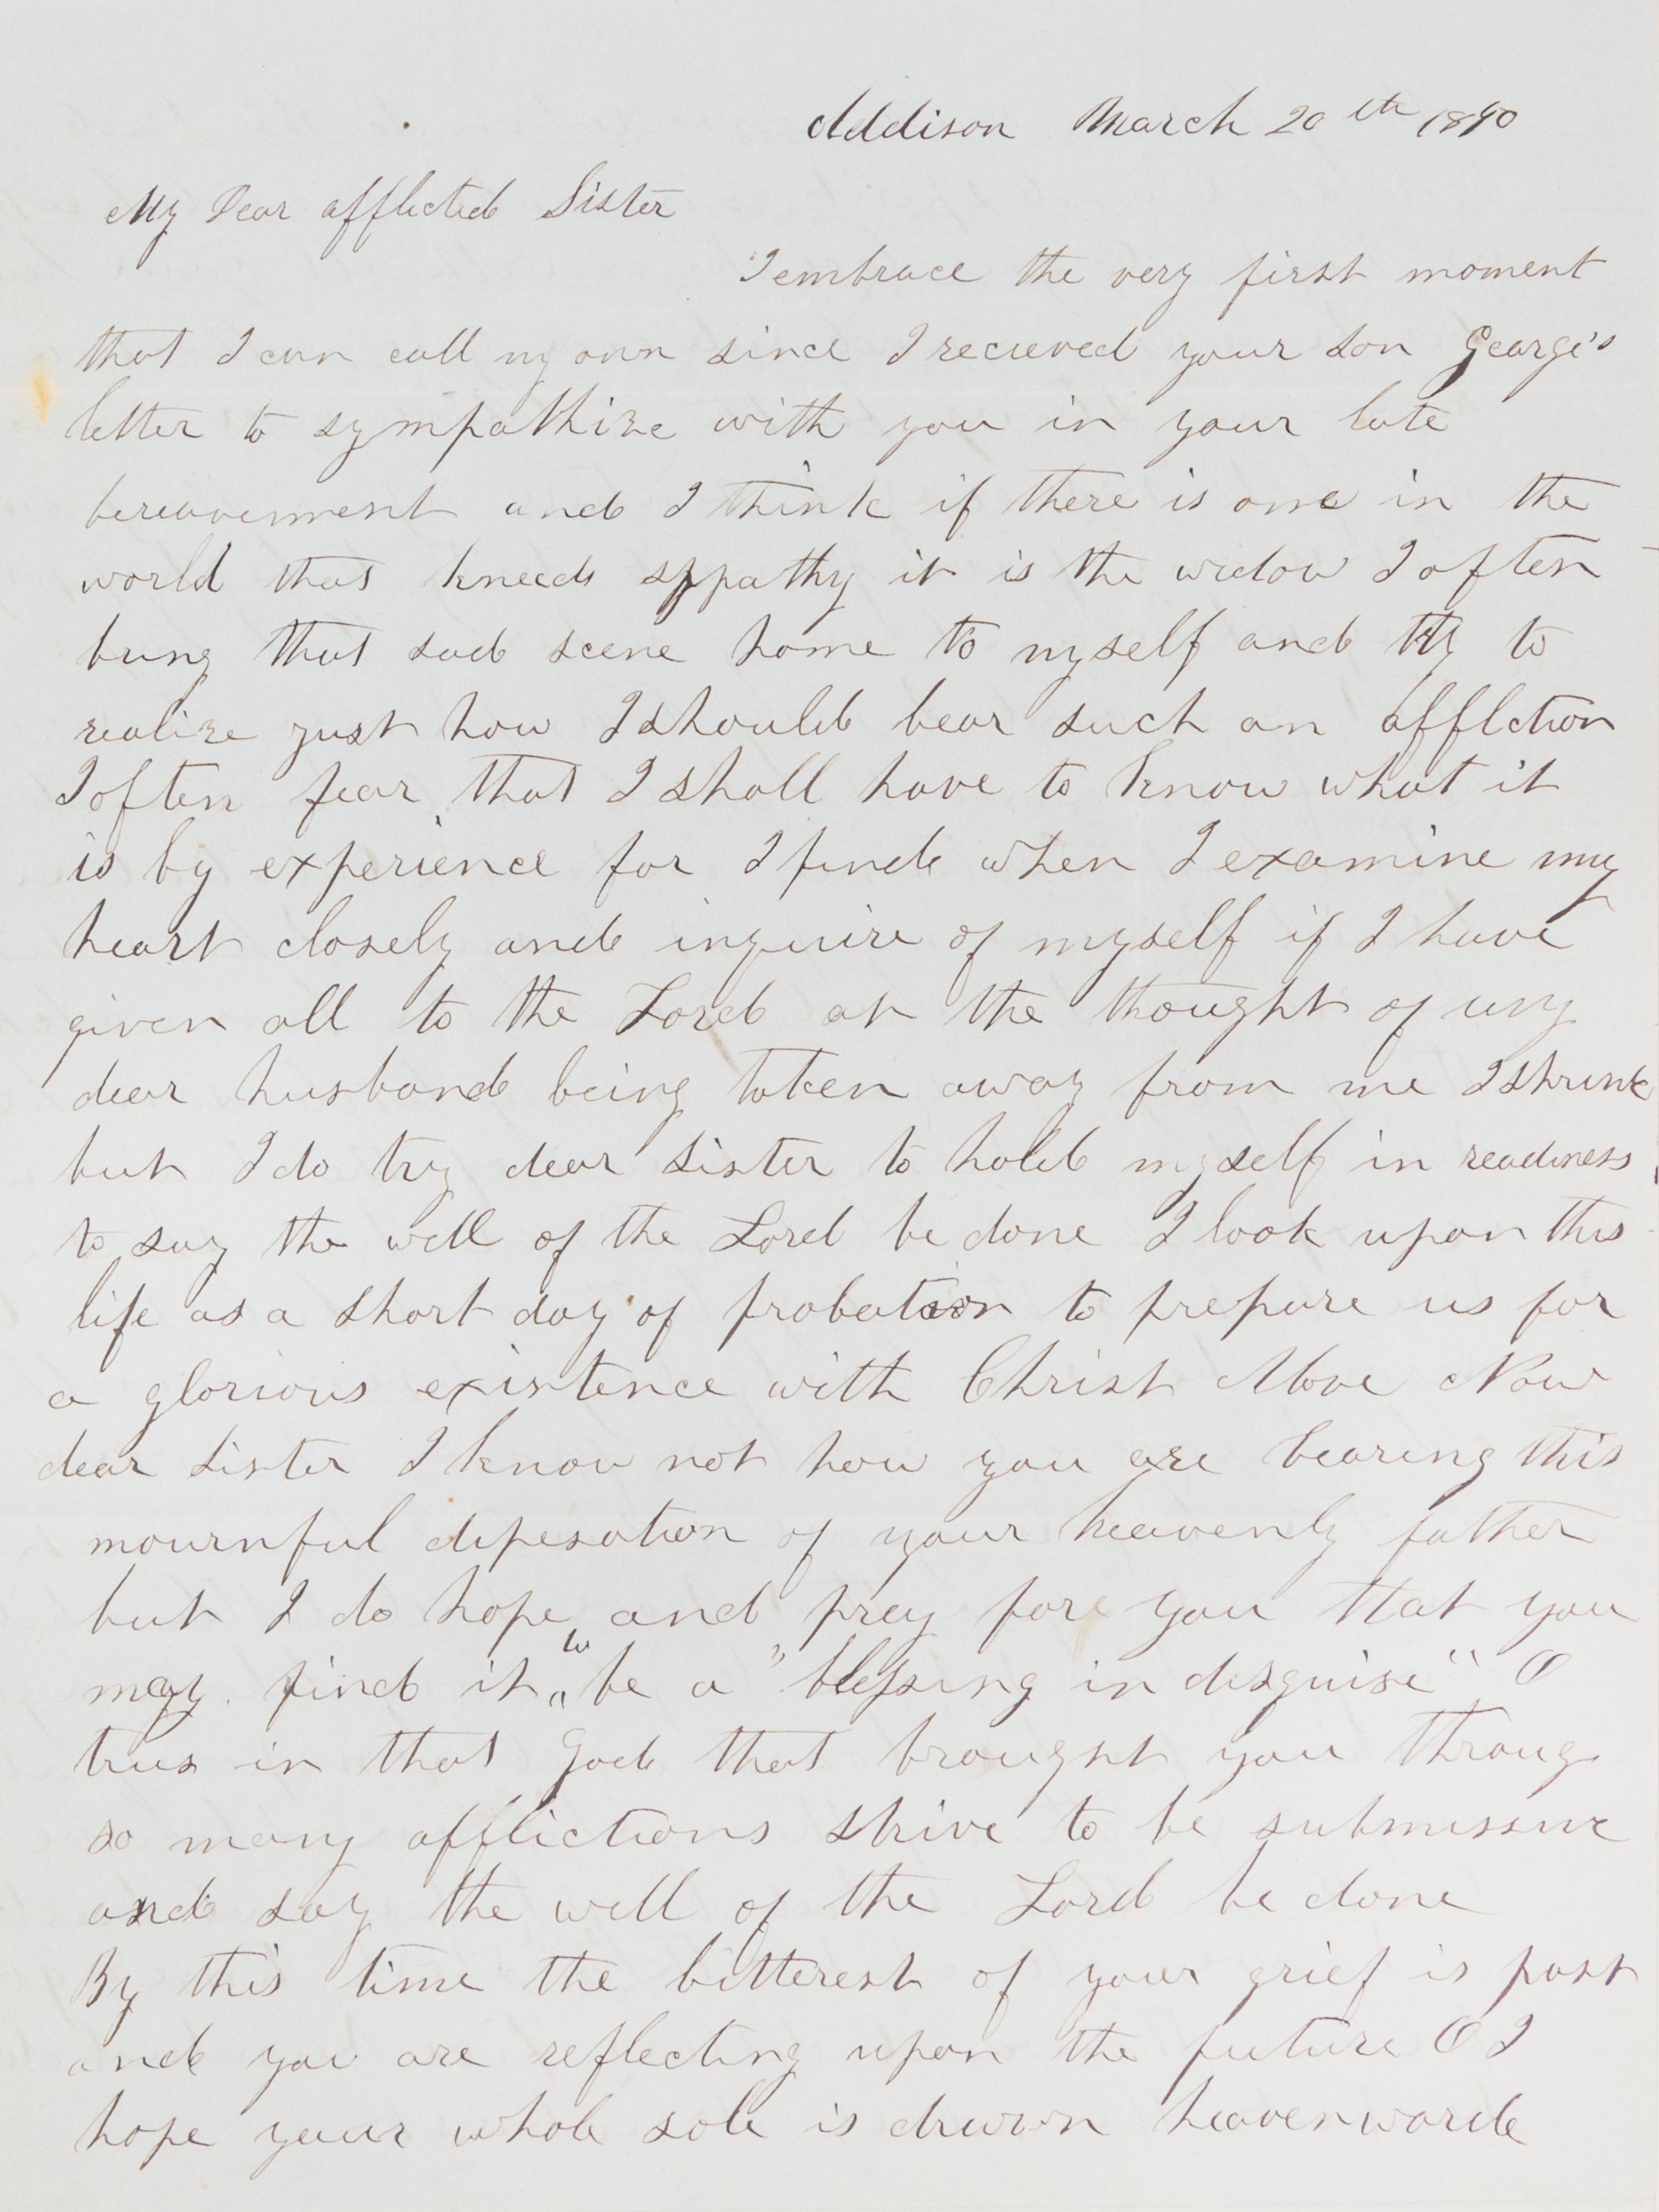 Addison March 20th 1890
My Dear afflicted Sister
I embrace the very first moment
that I can call my own since I recieved your son George's
letter to sympathize with you in your late
bereavement and I think if there is one in the
world that kneeds sypathy it is the widow I often
bring that sad scene home to myself and try to
realize just how I should bear such an afflction
I often fear that I shall have to know what it
is by experience for I find when I examine my
heart closely and inquire of myself if I have
given all to the Lord at the thought of my
dear husband being taken away from me I shrink
but I do try dear sister to hold myself in readiness
to say the will of the Lord be done I look upon this
life as a short day of probation to prepare us for
a glorious existence with Christ Above Now
dear sister I know not how you are bearing this
mournful dipesation of your heavenly father
but I do hope and prey for you that you
may find it to be a "blessing in disguise" O
trus in that God that brought you throug
so many afflictions strive to be submissive
and say the will of the Lord be done
By this time the bitterest of your grief is past
and you are reflecting upon the future O I
hope your whole sole is drawn heavenward